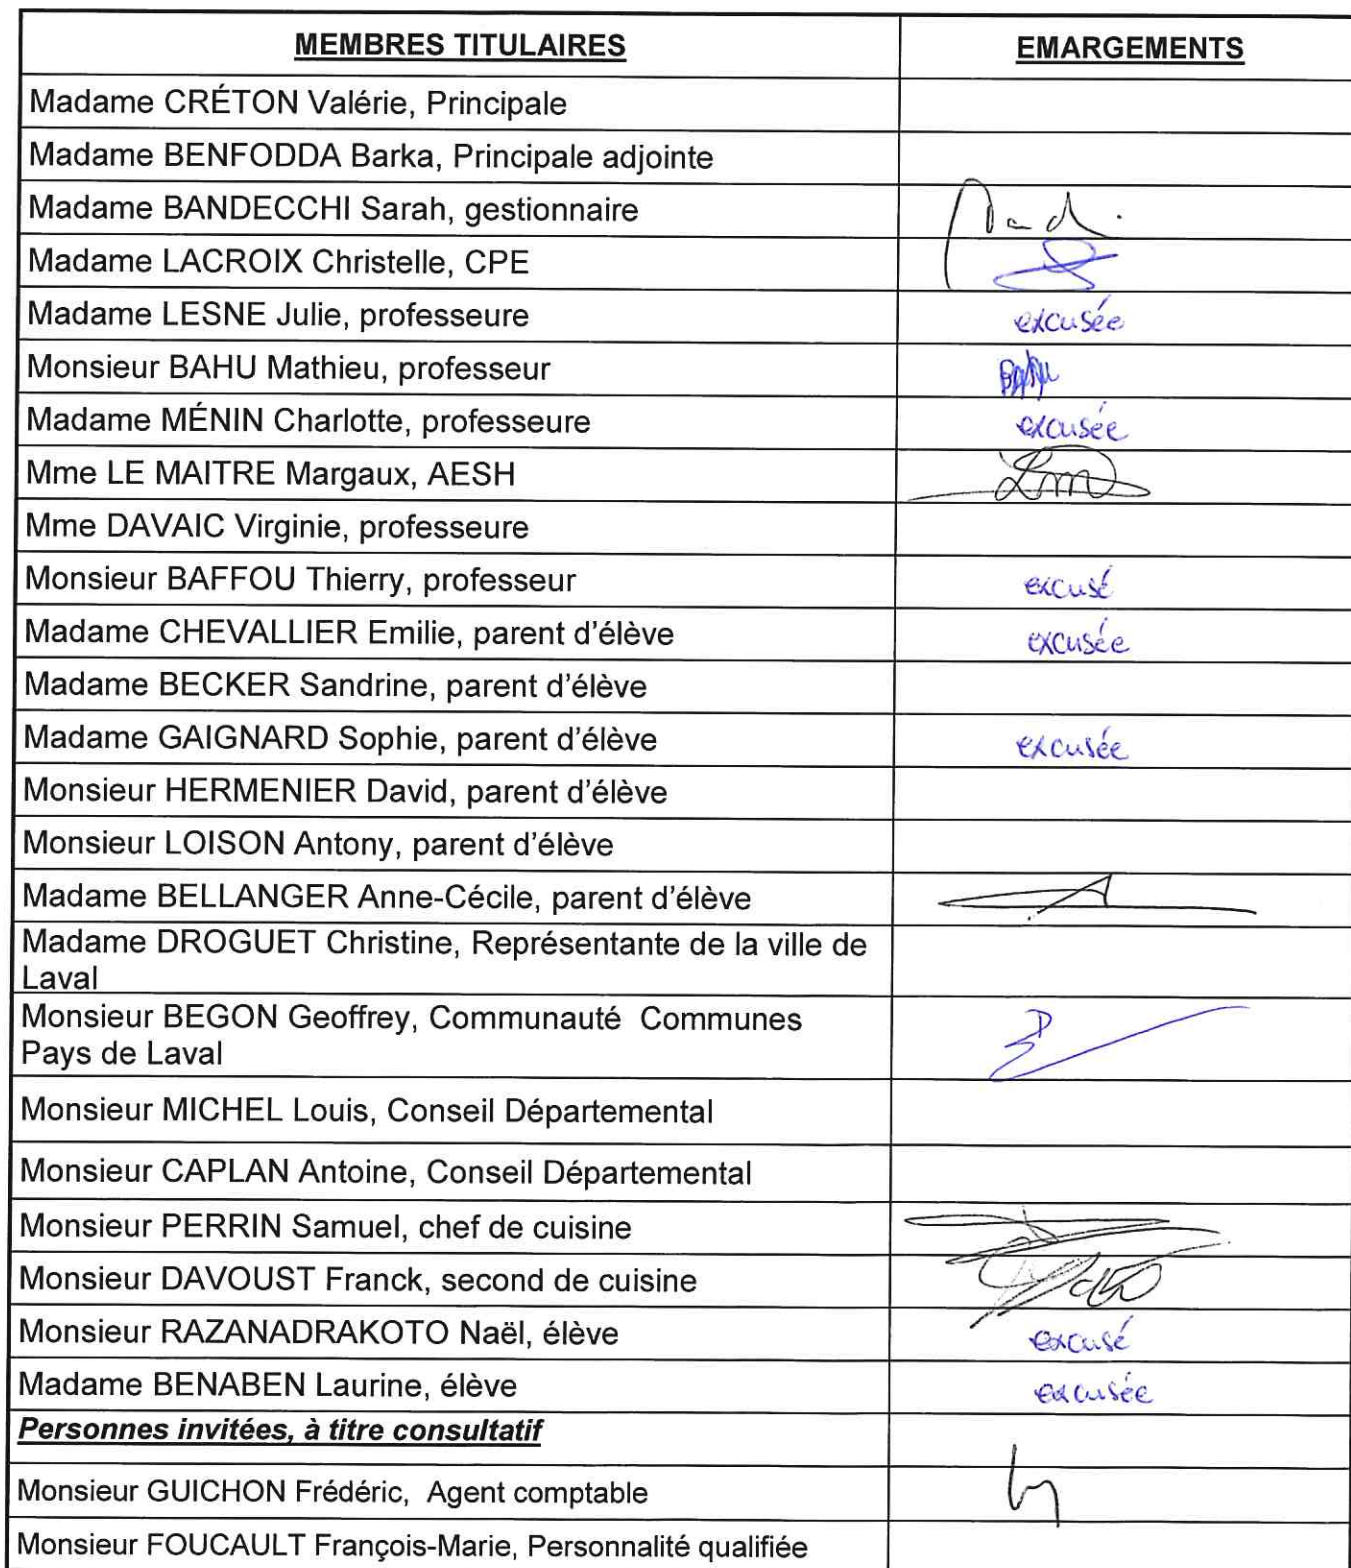 MEMBRES TITULAIRES EMARGEMENTS
Madame CRÉTON Valérie, Principale
Madame BENFODDA Barka, Principale adjointe
Madame BANDECCHI Sarah, gestionnaire
Madame LACROIX Christelle, CPE
Madame LESNE Julie, professeure excusée
Monsieur BAHU Mathieu, professeur BAHU
Madame MÉNIN Charlotte, professeure excusée
Mme LE MAITRE Margaux, AESH
Mme DAVAIC Virginie, professeure
Monsieur BAFFOU Thierry, professeur excusé
Madame CHEVALLIER Emilie, parent d'élève excusée
Madame BECKER Sandrine, parent d'élève
Madame GAIGNARD Sophie, parent d'élève excusée
Monsieur HERMENIER David, parent d'élève
Monsieur LOISON Antony, parent d'élève
Madame BELLANGER Anne-Cécile, parent d'élève
Madame DROGUET Christine, Représentante de la ville de
Laval
Monsieur BEGON Geoffrey, Communauté Communes
Pays de Laval
Monsieur MICHEL Louis, Conseil Départemental
Monsieur CAPLAN Antoine, Conseil Départemental
Monsieur PERRIN Samuel, chef de cuisine
Monsieur DAVOUST Franck, second de cuisine
Monsieur RAZANADRAKOTO Naël, élève excusé
Madame BENABEN Laurine, élève excusée
Personnes invitées, à titre consultatif
Monsieur GUICHON Frédéric, Agent comptable
Monsieur FOUCAULT François-Marie, Personnalité qualifiée